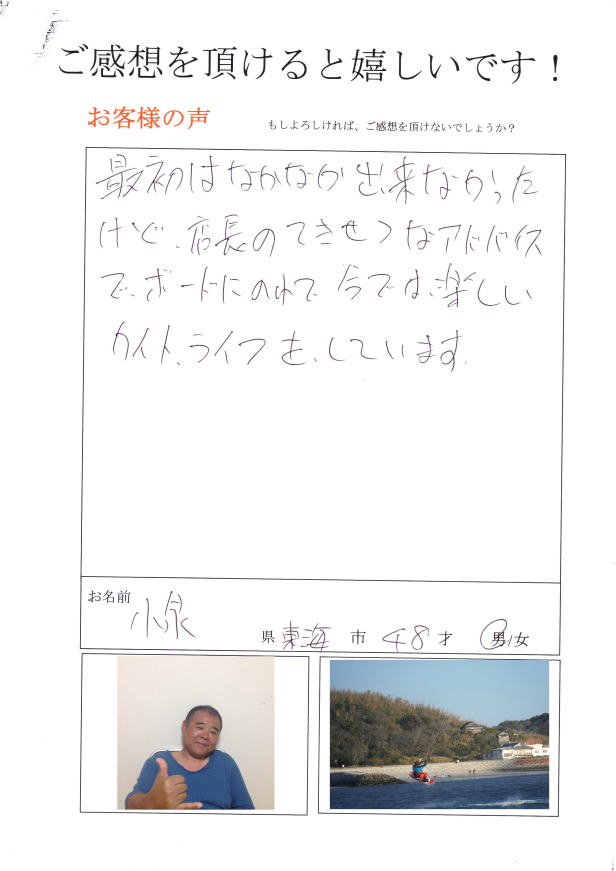 ご感想を頂けると嬉しいです！
お客様の声
もしよろしければ、ご感想を頂けないでしょうか？
最初はなかなか出来なかった
けど、店長のてきせつなアドバイス
で、ボードにのれて今では、楽しい
カイト、ライフを、しています。
お名前
小泉
県 東海 市 48 才 男/女